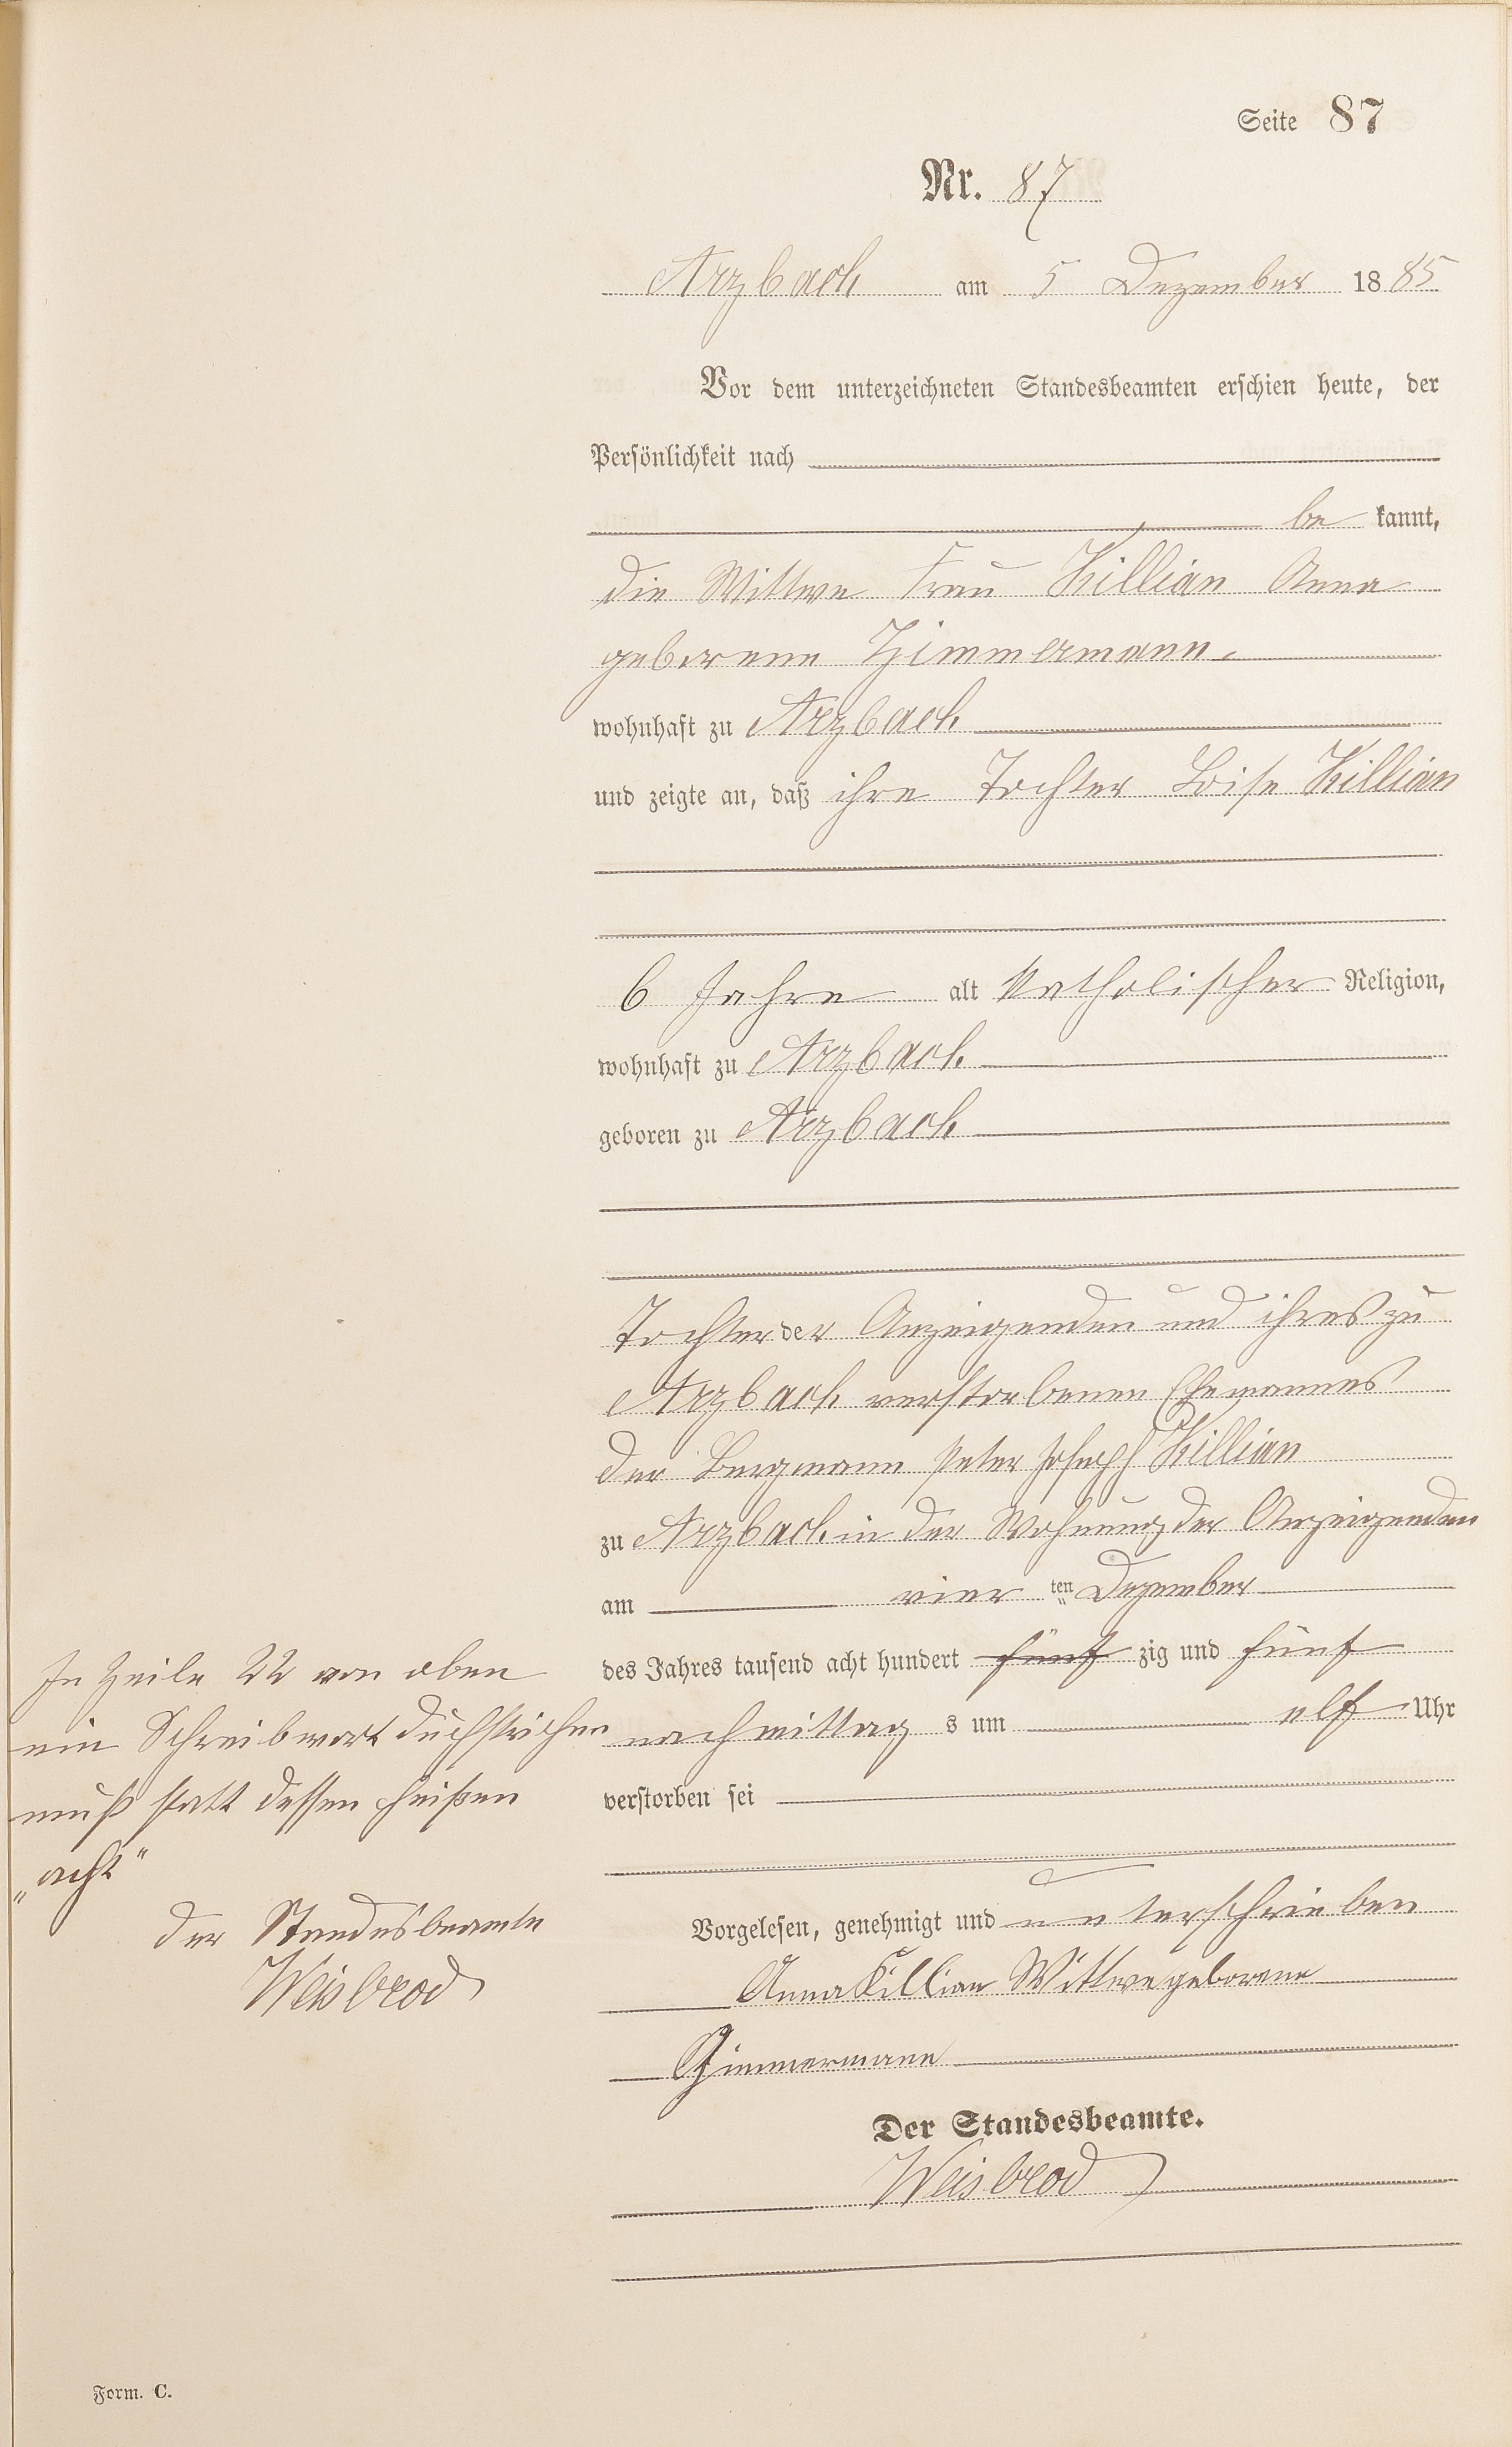 Seite 87
Nr. 87
Arzbach am 5 Dezember 1885
Vor dem unterzeichneten Standesbeamten erschien heute, der
Persönlichkeit nach
be kannt,
die Wittwe Frau Killian Anna
geborene Zimmermann.
wohnhaft zu Arzbach
und zeigte an, daß ihre Tochter Loise Killian
6 Jahre alt katholischer Religion,
wohnhaft zu Arzbach
geboren zu Arzbach
Tochter der Anzeigenden und ihres zu
Arzbach verstorbenen Ehemannes
der Bergmann Peter Joseph Killian
zu Arzbach in der Wohnung der Anzeigenden
am vier ten Dezember
des Jahres tausend acht hundert fünf zig und fünf
nachmittag s um elf Uhr
verstorben sei
Vorgelesen, genehmigt und unterschrieben
Anna Killian Wittwe geborene
Zimmermann
Der Standesbeamte.
Weisbrod
In Zeile 22 von oben
ein Schreibwort duchstrichen
muß statt dessen heißen
„acht"
der Standesbeamte
Weisbrod
Form. C.